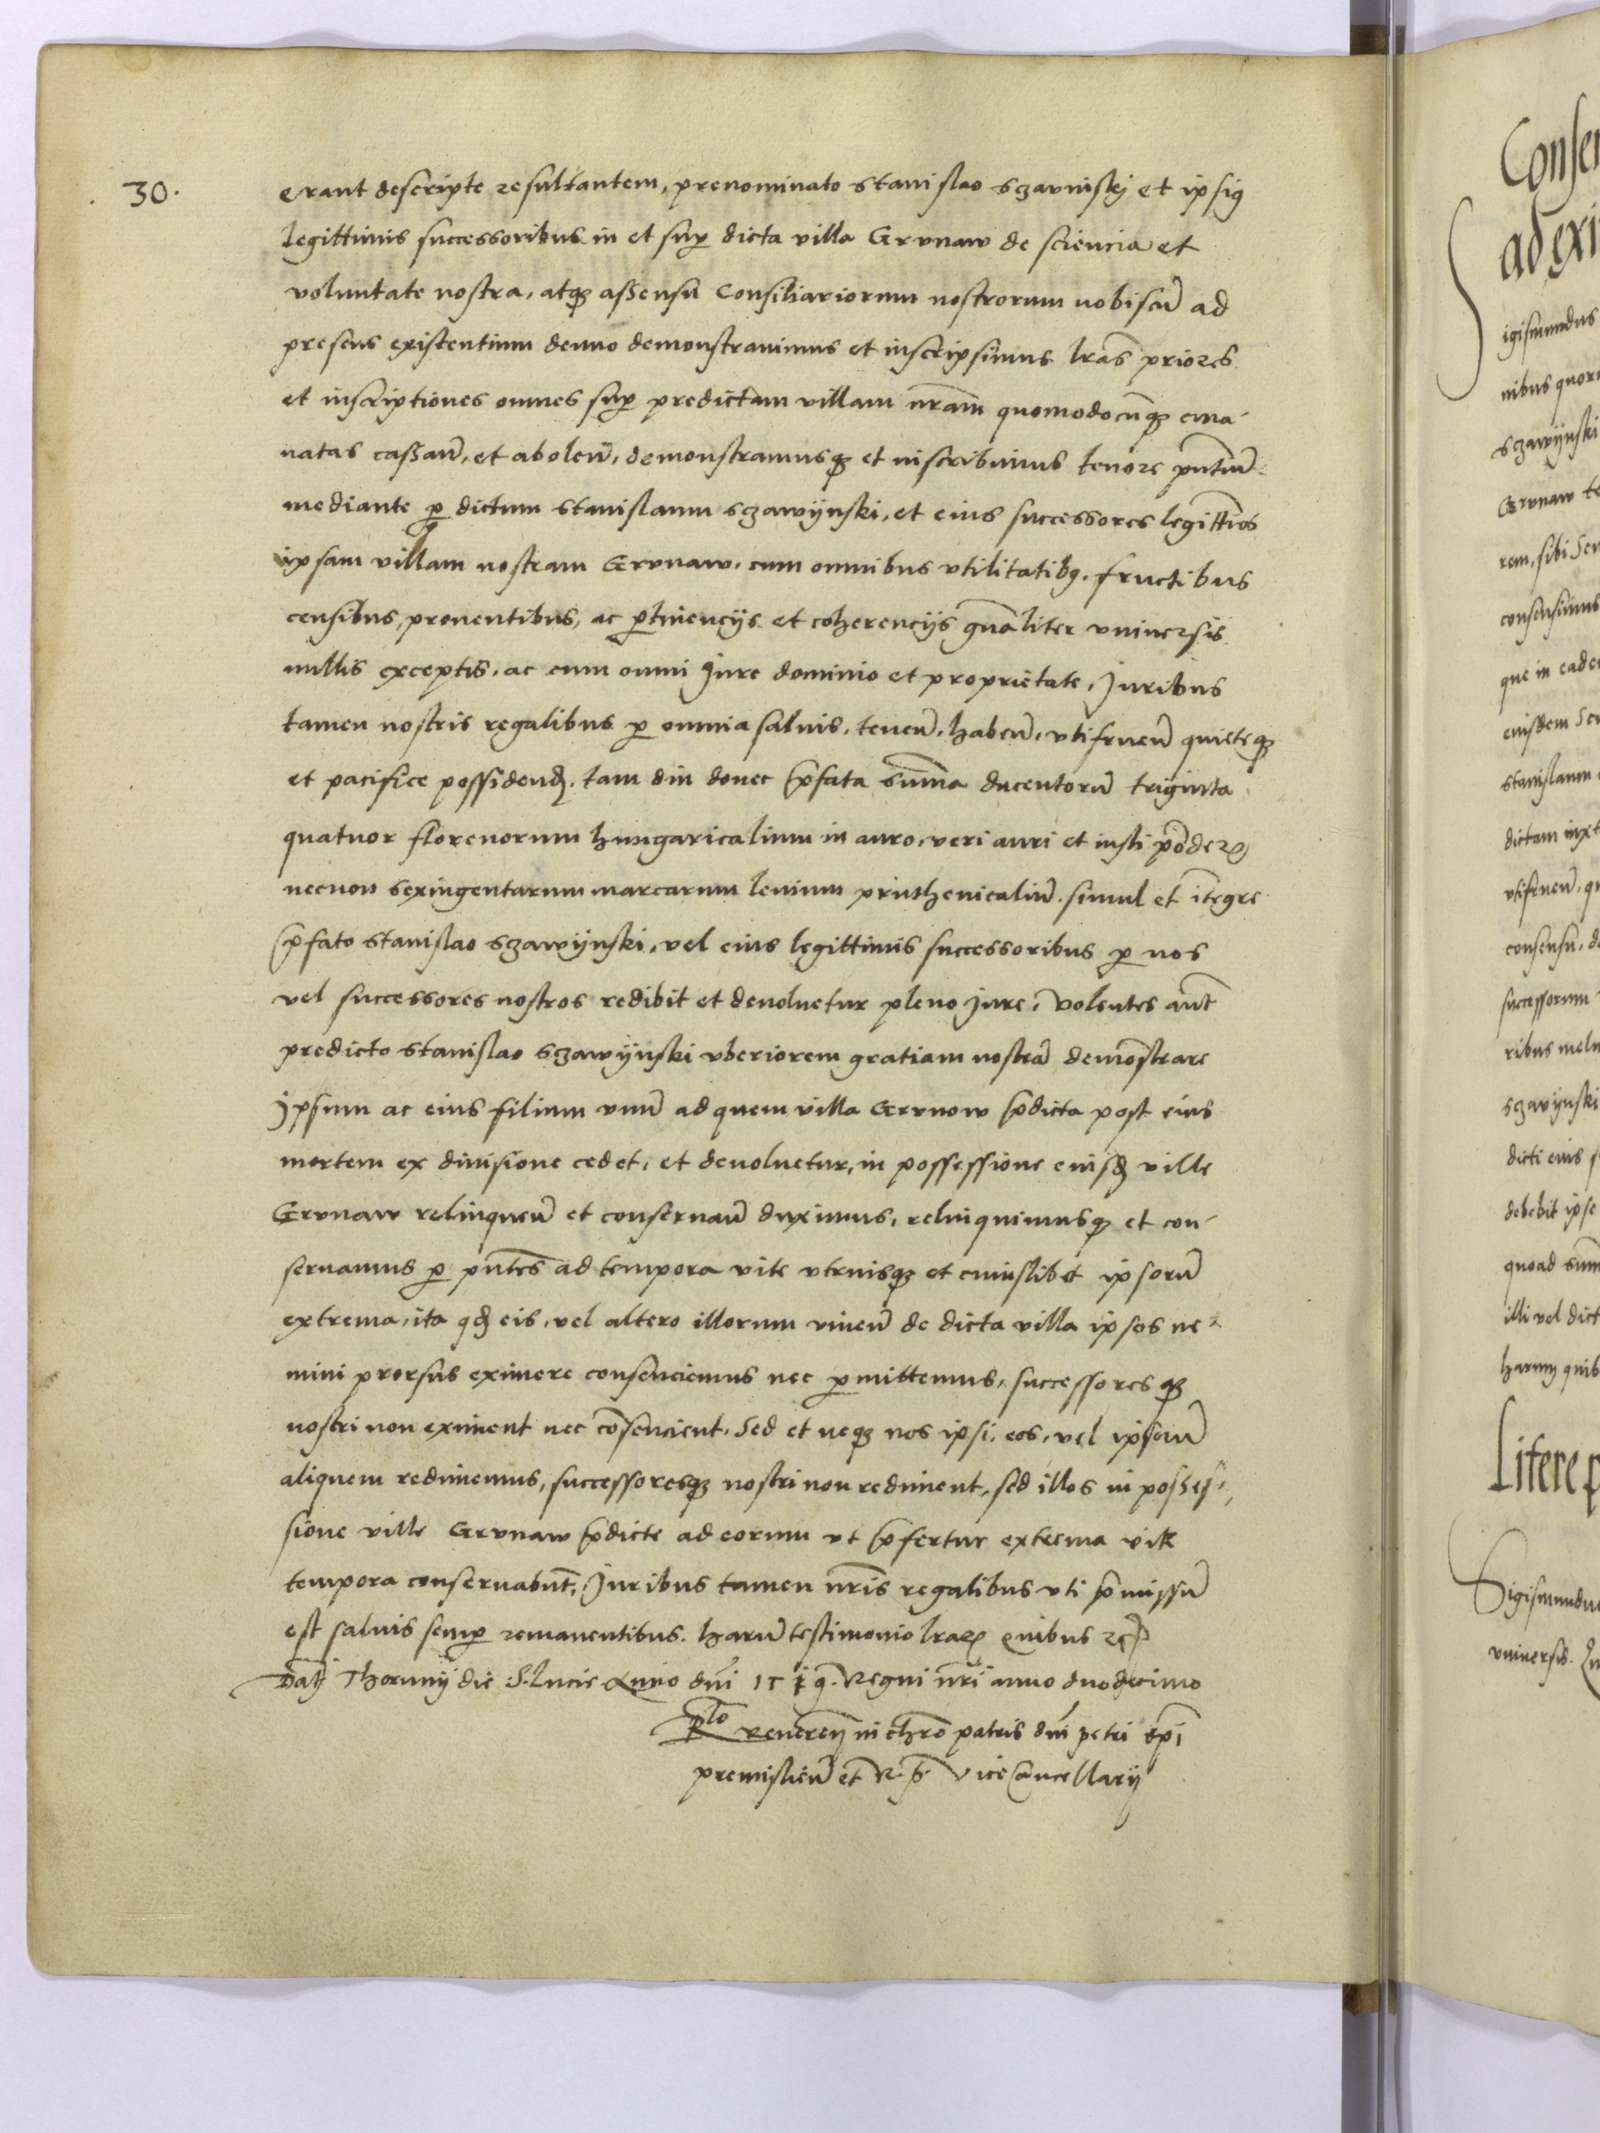 30.
erant descripte resultantem, prenominato stanislao sczavinskj et ipsiꝰ
legittimis successoribus in et suꝑ dicta villa Grvnaw de sciencia et
voluntate nostra, atqꝫ assensu Consiliariorum nostrorum nobiscū ad
presens existentium denuo demonstravimus et inscripsimus. lrās priores
et inscriptiones omnes suꝑ predictam villam nrām quomodocūqꝫ ema-
natas cassan̄, et abolen̄, demonstramusqꝫ et inscribimus tenore pn̄tiū
mediante ꝑ dictum stanislaum sczawÿnski, et eius successores legittīos
ipsam villam nostram Grvnaw, cum omnibus vtilitatibꝰ, fructibus
censibus, proventibus, ac ꝑtinencÿs et coherencÿs gn̄aliter vniversis
nullis exceptis, ac cum omni Jure dominio et proprietate, Juribus
tamen nostris regalibus ꝑ omnia salvis, tenen̄, haben̄, vtifruen̄ quieteqꝫ
et pacifice possidenđ, tam diu donec p̄fata sum̄a ducentorū triginta
quatuor florenorum hungaricalium in auro, veri auri et iusti pōderꝭ
necnon sexingentarum marcarum levium pruthenicaliū. simul et ītegre
p̄fato stanislao sczawÿnski, vel eius legittimis successoribus ꝑ nos
vel successores nostros redibit et devoluetur pleno Jure, Volentes aūt
predicto stanislao sczawÿnski vberiorem gratiam nostrā demōstrare
Jpsum ac eius filium vnū ad quem villa Grvnow p̄dicta post eius
mortem ex divisione cedet, et devoluetur, in possessione eiusđ ville
Grvnaw relinquen̄ et conservan̄ duximus, relinquimusqꝫ et con-
servamus ꝑ pn̄tes ad tempora vite vtriusqꝫ et cuiuslibet ipsorū
extrema, ita qđ eis, vel altero illorum viven̄ de dicta villa ipsos ne-
mini prorsus eximere consenciemus nec ꝑmittemus, successoresqꝫ
nostri non eximent nec cōsencient. Sed et neqꝫ nos ipsi, eos, vel ipsorū
aliquem redimemus, successoresqꝫ nostri non rediment, sed illos in posses-
sione ville Grvnaw p̄dicte ad eorum vt p̄fertur extrema vite
tempora conservabūt, Juribus tamen nrīs regalibus vti p̄missū
est salvis semꝑ remanentibus. harū testimonio lrarꝝ quibus rc
Datꝭ Thorunÿ die S. Lucie Anno dn̄i 1519. Regni nrī anno duodecimo
Rlo Reverenđ in chrō patris dn̄i petri epī
premislien̄ et R. p̄. ViceCancellarÿ
Consen
ad exi
igismundus
nibus quor
sczawÿnski
Grvnaw te
rem, sibi Ser
consensimus
que in eade
eiusdem Ser
stanislaum
dictam iuxt
vtifruen̄, qu
consensu, d
successorum
ribus melu
sczavÿnski
dicti eius f
debebit ipse
quoad sum̄
illi vel dict
harum quib
Litere p
Sigismundu
vniversis. Qu